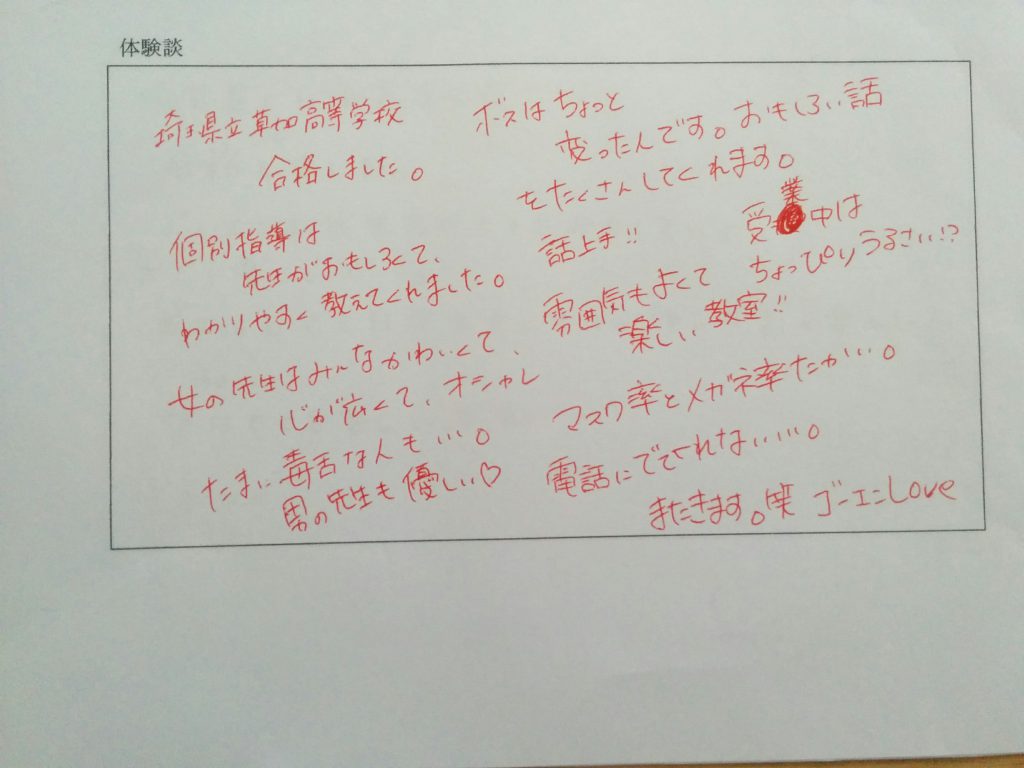 体験談
埼玉県立草加高等学校
合格しました。
個別指導は
先生がおもしろくて、
わかりやすく教えてくれました。
女の先生はみんなかわいくて、
心が広くて、オシャレ
たまに毒舌な人も…。
男の先生も優しい♡
ボスはちょっと
変ったんです。おもしろい話
をたくさんしてくれます。
話上手!!
受業中は
ちょっぴりうるさい!?
雰囲気もよくて
楽しい教室!!
マスク率とメガネ率たかい…。
電話にでてくれない…。
またきます。笑 ゴーエンLove